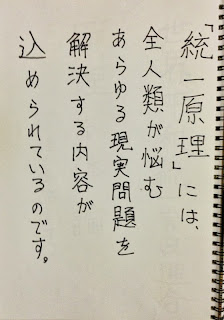 「統一原理」には、
全人類が悩む
あらゆる現実問題を
解決する内容が
込められているのです。